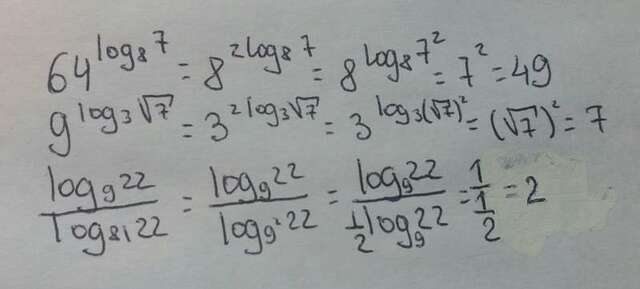 64^{log_8 7} = 8^{2 log_8 7} = 8^{log_8 7^2} = 7^2 = 49
9^{log_3 √7} = 3^{2 log_3 √7} = 3^{log_3 (√7)^2} = (√7)^2 = 7
\frac{log_9 22}{log_{81} 22} = \frac{log_9 22}{log_{9^2} 22} = \frac{log_9 22}{\frac{1}{2} log_9 22} = \frac{1}{\frac{1}{2}} = 2